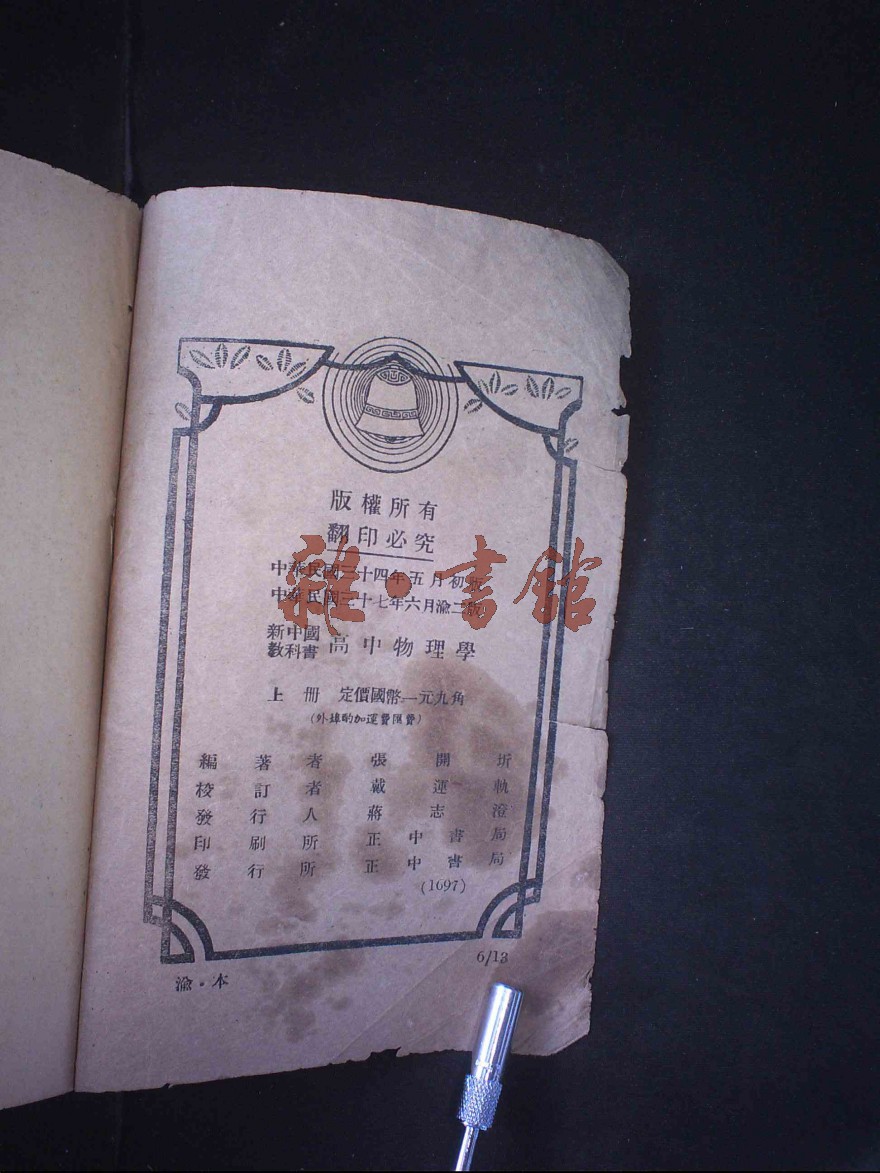 版權所有
翻印必究
中華民國三十四年五月初版
中華民國三十七年六月渝二版
雜·書館
新中國
教科書 高中物理學
上冊 定價國幣一元九角
(外埠酌加運費匯費)
編著者 張開圻
校訂者 戴運軌
發行人 蔣志澄
印刷所 正中書局
發行所 正中書局
(1697)
6/13
渝·本